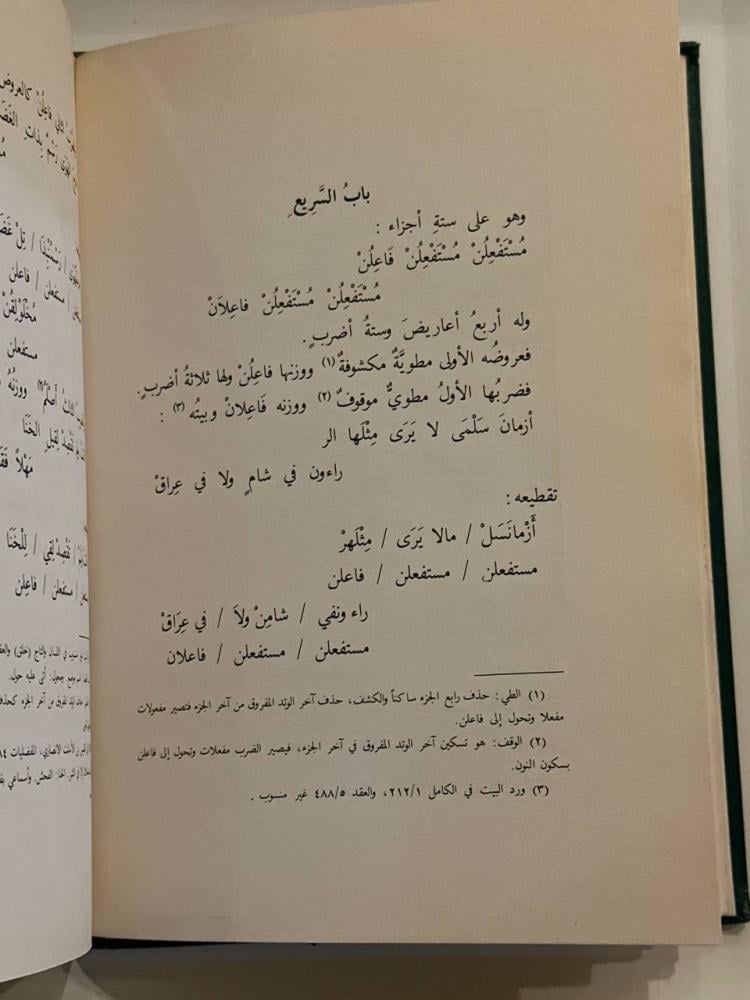 بابُ السَّرِيعِ
وهو على ستةِ أجزاء :
مُسْتَفْعِلُنْ مُسْتَفْعِلُنْ فَاعِلُنْ
مُسْتَفْعِلُنْ مُسْتَفْعِلُنْ فاعِلاَنْ
وله أربعُ أعاريضَ وستةُ أضربٍ.
فعروضُه الأولى مطويَّةٌ مكشوفةٌ (١) ووزنها فاعِلُنْ ولها ثلاثةُ أضربٍ.
فضربُها الأولُ مطويٌّ موقوفٌ (٢) ووزنه فَاعِلانْ وبيتُه (٣) :
أزمانَ سَلْمَى لا يَرَى مِثْلَها الر
راءون في شامٍ ولا في عِراقْ
تقطيعه :
أَزْمانَسَلْ / مالا يَرَى / مِثْلَهرْ
مستفعلن / مستفعلن / فاعلن
راء ونفي / شامِنْ ولاَ / في عِرَاقْ
مستفعلن / مستفعلن / فاعلان
(١) الطي : حذف رابع الجزء ساكناً والكشف، حذف آخر الوتد المفروق من آخر الجزء فتصير مفعولات
مفعلا وتحول إلى فاعلن.
(٢) الوقف: هو تسكين آخر الوتد المفروق في آخر الجزء، فيصير الضرب مفعلات وتحول إلى فاعلن
بسكون النون.
(٣) ورد البيت في الكامل ٢١٢/١، والعقد ٤٨٨/٥ غير منسوب .
كالعروض
مستفعلن / فاعلن
مستفعلن
تَقْصِدْ لِقِيلِ الخَنَا
مستفعلن / فاعلن